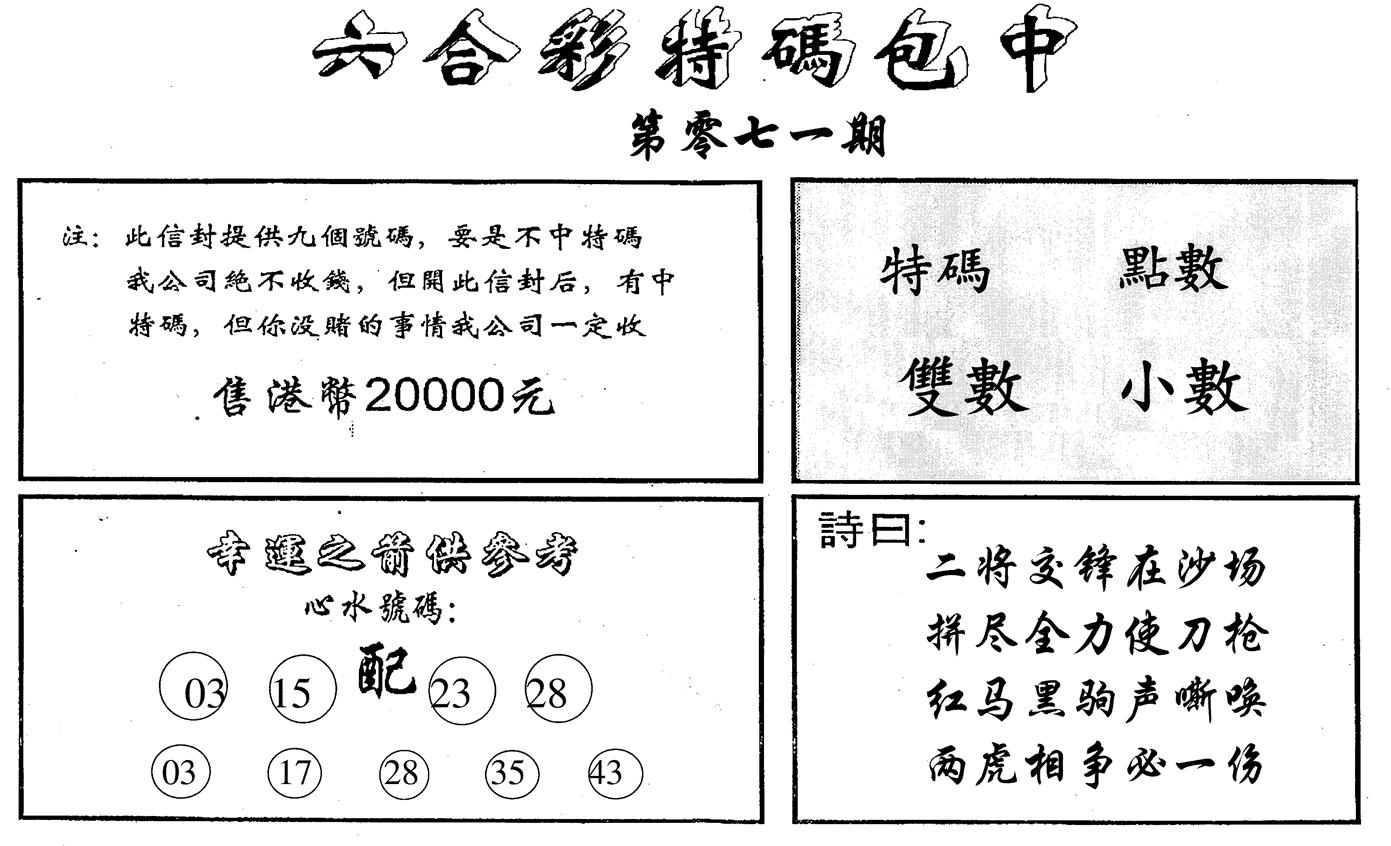 六合彩特碼包中
第零七一期
注：此信封提供九個號碼，要是不中特碼
我公司絕不收錢，但開此信封后，有中
特碼，但你没賭的事情我公司一定收
售港幣20000元
特碼 點數
雙數 小數
幸運之箭供參考
心水號碼：
03 15 配 23 28
03 17 28 35 43
詩曰：
二将交锋在沙场
拼尽全力使刀枪
红马黑驹声嘶唤
两虎相争必一伤